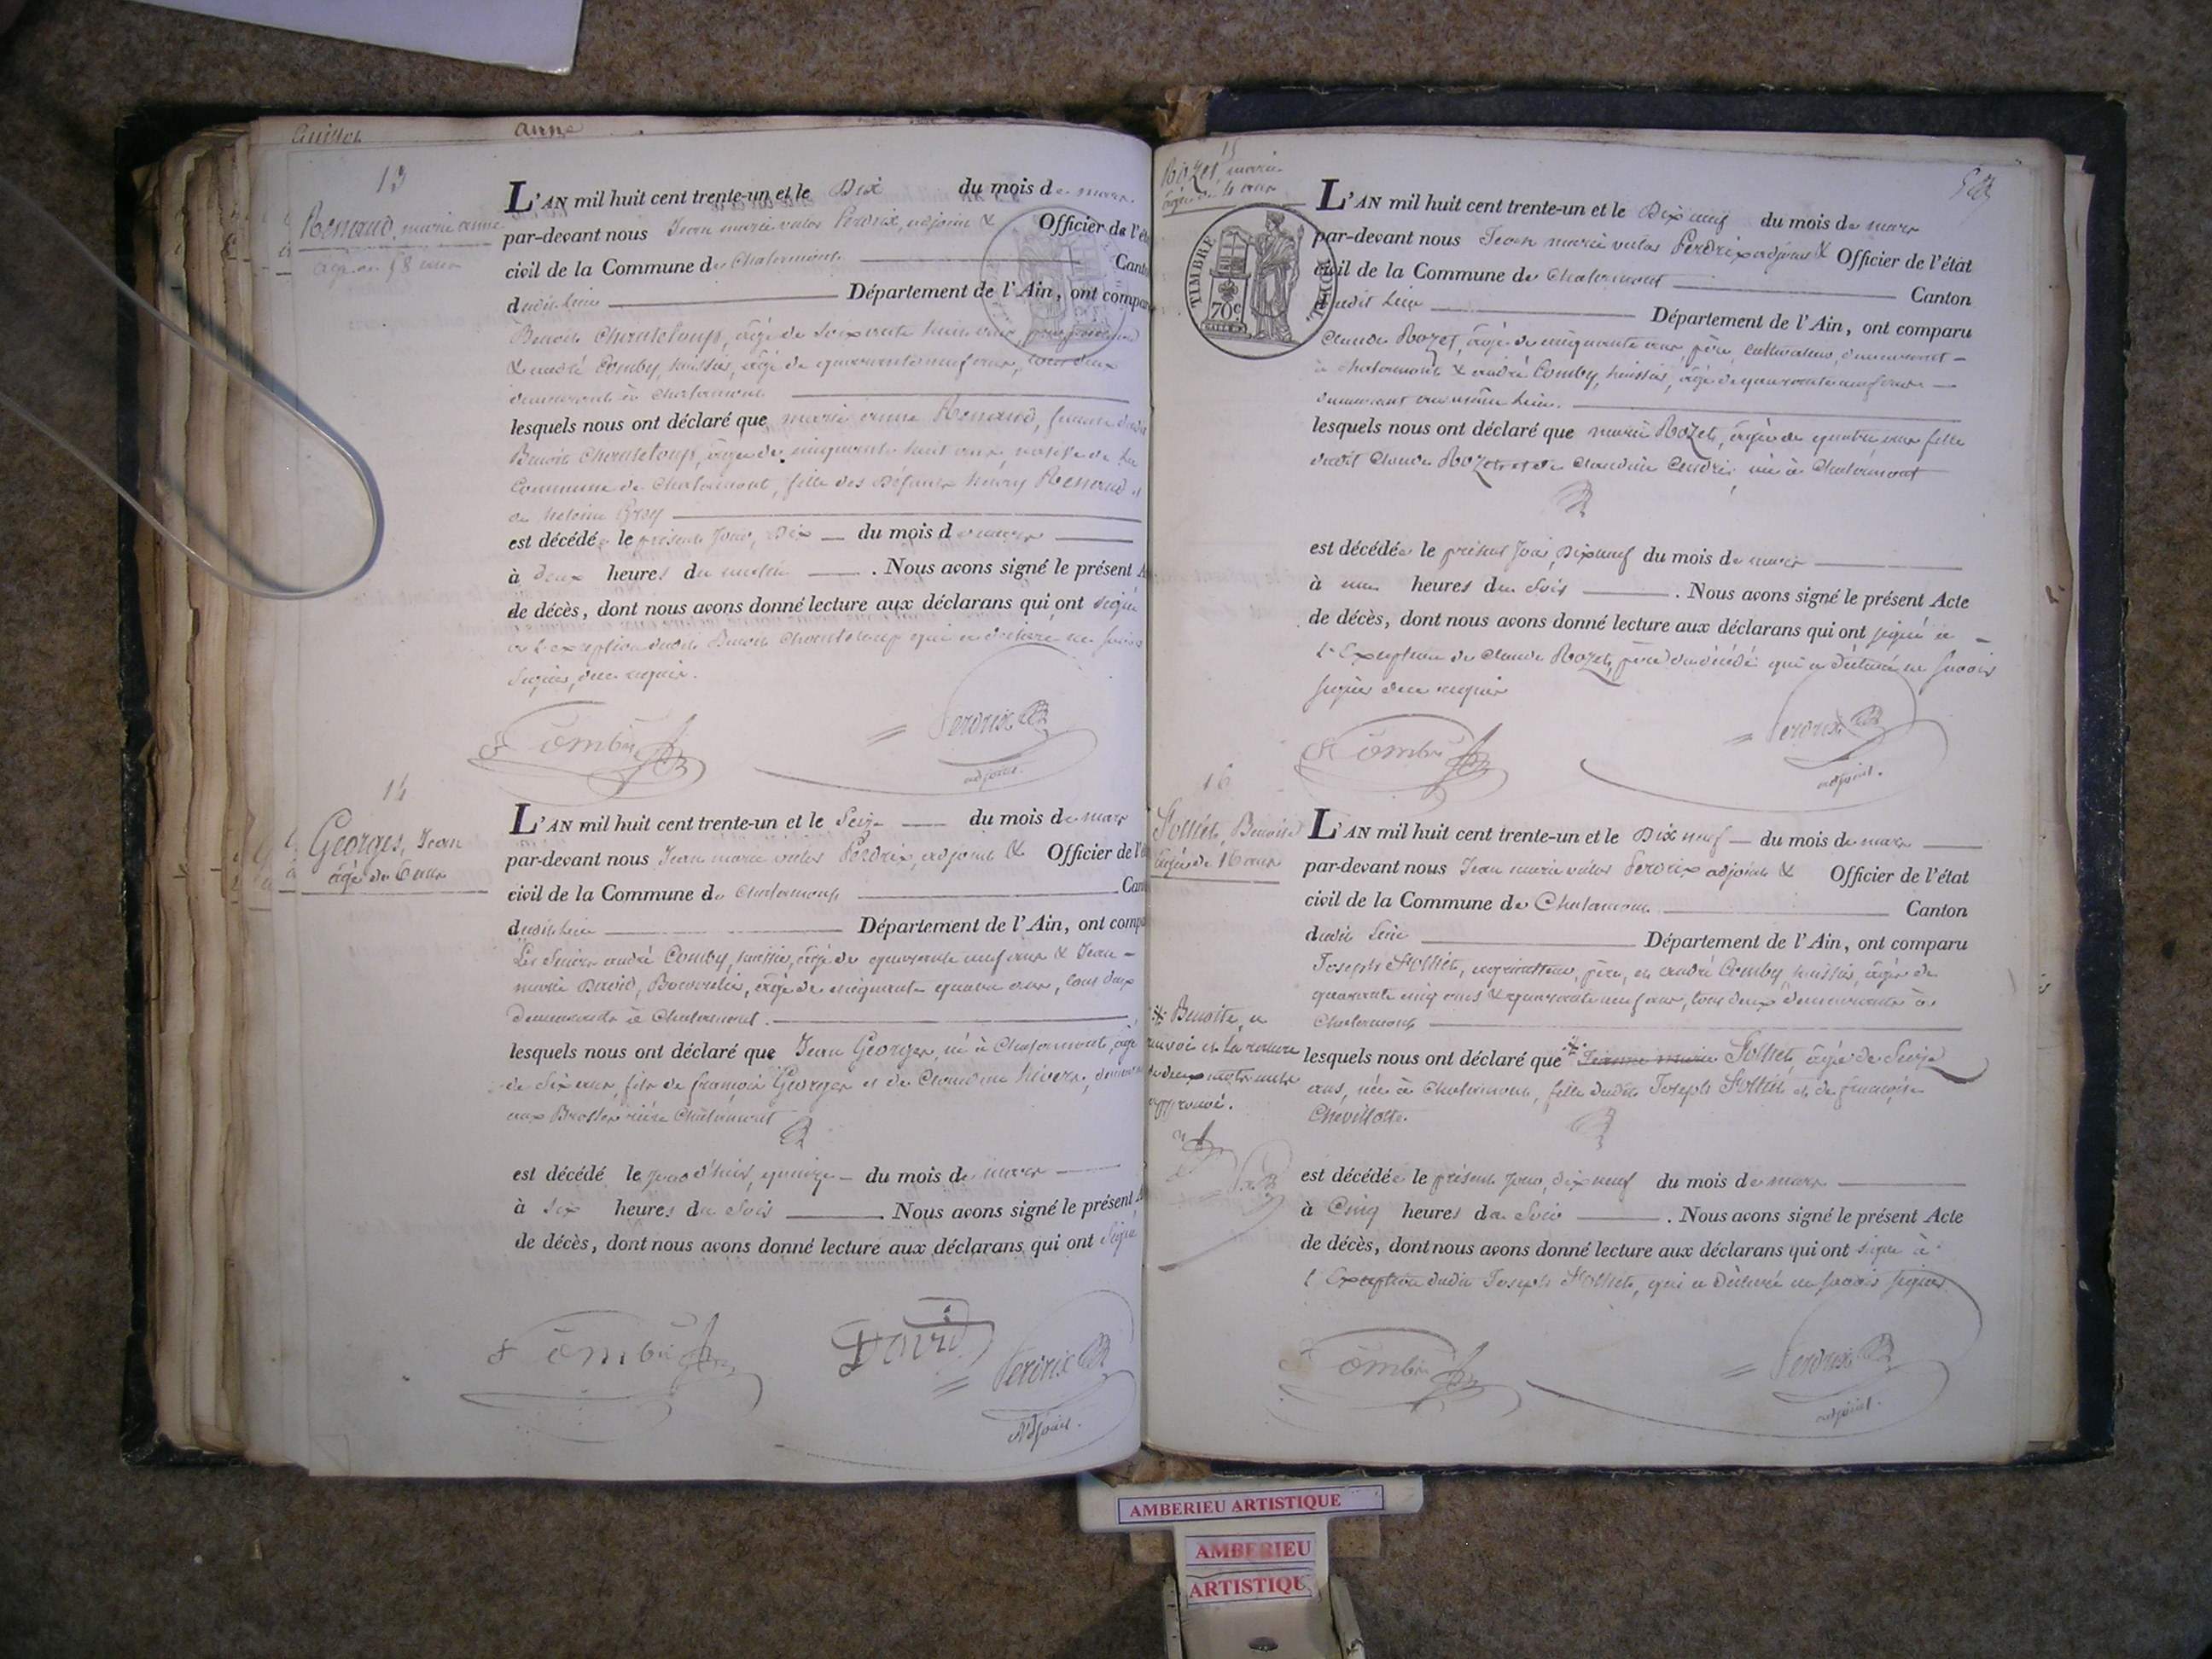 Guillot anne
13
Renaud, marie anne
âgée de 58 ans
L'AN mil huit cent trente-un et le Dix du mois de mars
par-devant nous Jean marie Perdrix, adjoint & Officier de l'ét
civil de la Commune de Chalamont Cant
dudit lieu Département de l'Ain, ont compar
Benoit Chanteloup, âgé de soixante huit ans,
& andré Comby, huissier, âgé de quarante neuf ans, tous deux
demeurants à Chalamont
lesquels nous ont déclaré que marie anne Renaud, femme dudit
Benoit Chanteloup, âgée de cinquante huit ans, native de la
Commune de Chalamont, fille des Défunts henry Renaud et
de
est décédée le présent jour, Dix du mois de mars
à deux heures du matin . Nous avons signé le présent A
de décès, dont nous avons donné lecture aux déclarans qui ont signé
à l'exception dudit Benoit Chanteloup qui a déclaré ne savoir
signer, de ce requis.
Comby Perdrix
adjoint.
14
Georges, Jean
âgé de 6 ans
L'AN mil huit cent trente-un et le Seize du mois de mars
par-devant nous Jean marie Perdrix, adjoint & Officier de l'é
civil de la Commune de Chalamont Can
dudit lieu Département de l'Ain, ont comp
Les Sieurs andré Comby, huissier, âgé de quarante neuf ans & Jean
marie David, Bourrelier, âgé de cinquante quatre ans, tous deux
Demeurants à Chalamont.
lesquels nous ont déclaré que Jean Georges, né à Chalamont, âgé
de Six ans, fils de françois Georges et de Claudine
aux Brosses rière Chalamont
est décédé le jour d'hier, quinze du mois de mars
à six heures du soir . Nous avons signé le présent A
de décès, dont nous avons donné lecture aux déclarans qui ont signé
Comby David Perdrix
adjoint.
15
Rozet, marie
âgée de 4 ans
TIMBRE ROYAL
70c
L'AN mil huit cent trente-un et le Dix neuf du mois de mars
par-devant nous Jean marie Perdrix adjoint & Officier de l'état
civil de la Commune de Chalamont Canton
dudit lieu Département de l'Ain, ont comparu
Claude Rozet, âgé de cinquante ans, père, cultivateur, demeurant
à Chalamont & andré Comby, huissier, âgé de quarante neuf ans
demeurant au même lieu.
lesquels nous ont déclaré que marie Rozet, âgée de quatre ans fille
dudit Claude Rozet et de Claudine née à Chalamont
est décédée le présent jour, Dix neuf du mois de mars
à une heures du soir . Nous avons signé le présent Acte
de décès, dont nous avons donné lecture aux déclarans qui ont signé à
l'Exception de Claude Rozet, père du décédé qui a déclaré ne savoir
signer de ce requis
Comby Perdrix
adjoint.
16
Benoite
âgée de 16 ans
L'AN mil huit cent trente-un et le Dix neuf du mois de mars
par-devant nous Jean marie Perdrix adjoint & Officier de l'état
civil de la Commune de Chalamont Canton
dudit lieu Département de l'Ain, ont comparu
Joseph père, et andré Comby, huissier, âgés de
quarante cinq ans & quarante neuf ans, tous deux demeurants à
Chalamont
lesquels nous ont déclaré que Jeanne marie âgée de Seize
ans, née à Chalamont, fille dudit Joseph et de françoise
Chevillotte.
Benoite, ce
renvoi et la rature
de deux mots nuls
approuvé.
est décédée le présent jour, dix neuf du mois de mars
à Cinq heures du Soir . Nous avons signé le présent Acte
de décès, dont nous avons donné lecture aux déclarans qui ont signé à
l'Exception dudit Joseph qui a déclaré ne savoir signer
Comby Perdrix
adjoint.
AMBERIEU ARTISTIQUE
AMBERIEU
ARTISTIQU